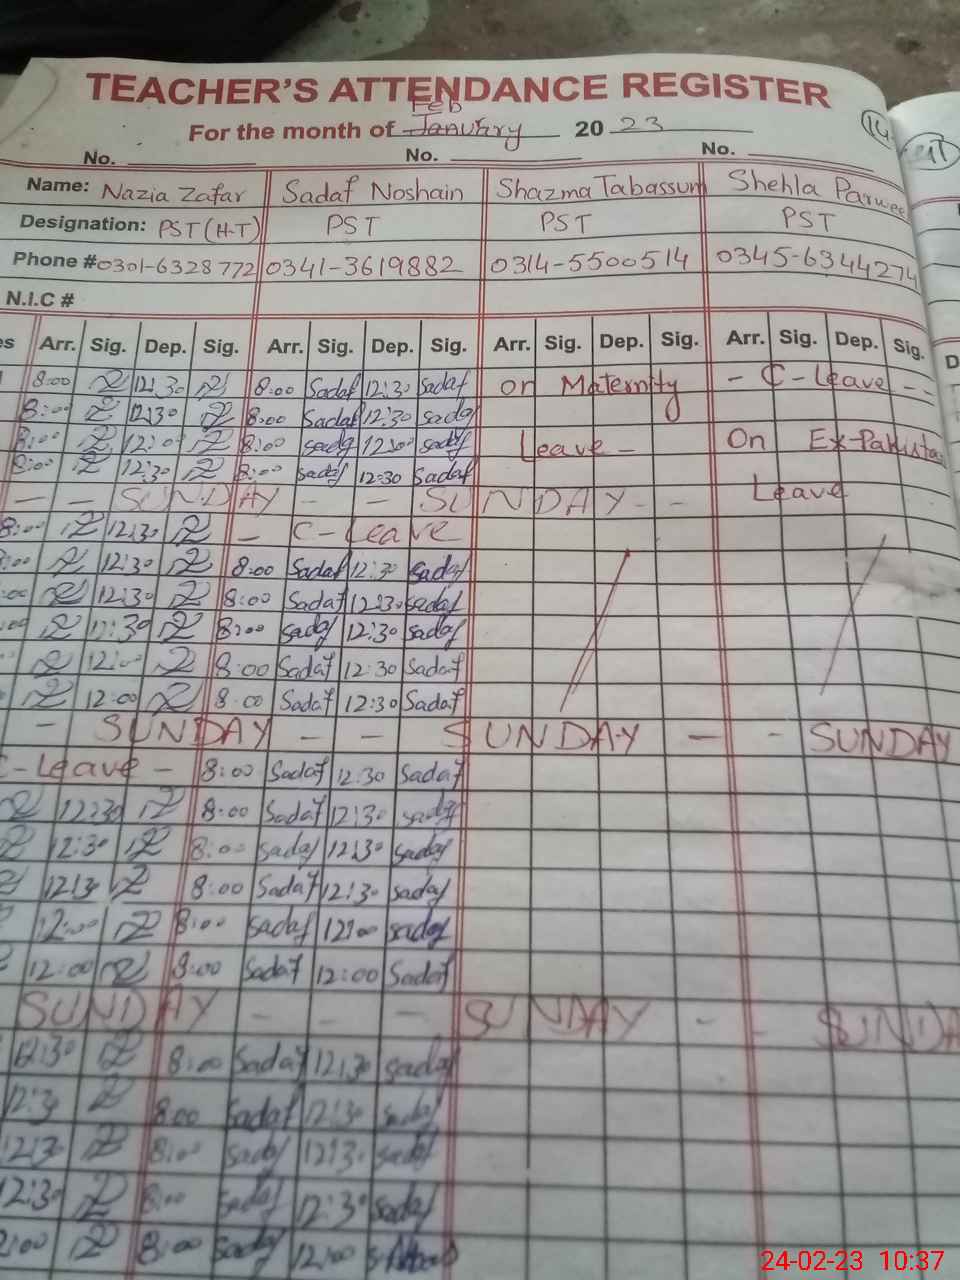 TEACHER'S ATTENDANCE REGISTER
Feb
For the month of January 20 23
No. No. No.
Name: Nazia Zafar Sadaf Noshain Shazma Tabassum Shehla Parwee
Designation: PST (H-T) PST PST PST
Phone # 0301-6328772 0341-3619882 0314-5500514 0345-6344274
N.I.C #
es Arr. Sig. Dep. Sig. Arr. Sig. Dep. Sig. Arr. Sig. Dep. Sig. Arr. Sig. Dep. Sig.
8:00 12:30 8:00 Sadaf 12:30 Sadaf on Maternity - C-Leave - -
8:00 12:30 8:00 Sadaf 12:30 Sadaf
8:00 12:00 8:00 Sadaf 12:00 Sadaf Leave - On Ex-Pakistan
8:00 12:30 8:00 Sadaf 12:30 Sadaf Leave
- - SUNDAY - - SUNDAY - -
8:00 12:30 - C-Leave
:00 12:30 8:00 Sadaf 12:30 Sadaf
:00 12:30 8:00 Sadaf 12:30 Sadaf
:00 12:30 8:00 Sadaf 12:30 Sadaf
12:00 8:00 Sadaf 12:30 Sadaf
12:00 8:00 Sadaf 12:30 Sadaf
- SUNDAY - - SUNDAY - - SUNDAY
C-Leave - 8:00 Sadaf 12:30 Sadaf
12:30 8:00 Sadaf 12:30 Sadaf
12:30 8:00 Sadaf 12:30 Sadaf
12:30 8:00 Sadaf 12:30 Sadaf
12:00 8:00 Sadaf 12:00 Sadaf
12:00 8:00 Sadaf 12:00 Sadaf
SUNDAY - - - SUNDAY - - SUNDA
12:30 8:00 Sadaf 12:30 Sadaf
12:30 8:00 Sadaf 12:30 Sadaf
12:30 8:00 Sadaf 12:30 Sadaf
12:30 8:00 Sadaf 12:30 Sadaf
2:00 8:00 Sadaf 12:00
24-02-23 10:37